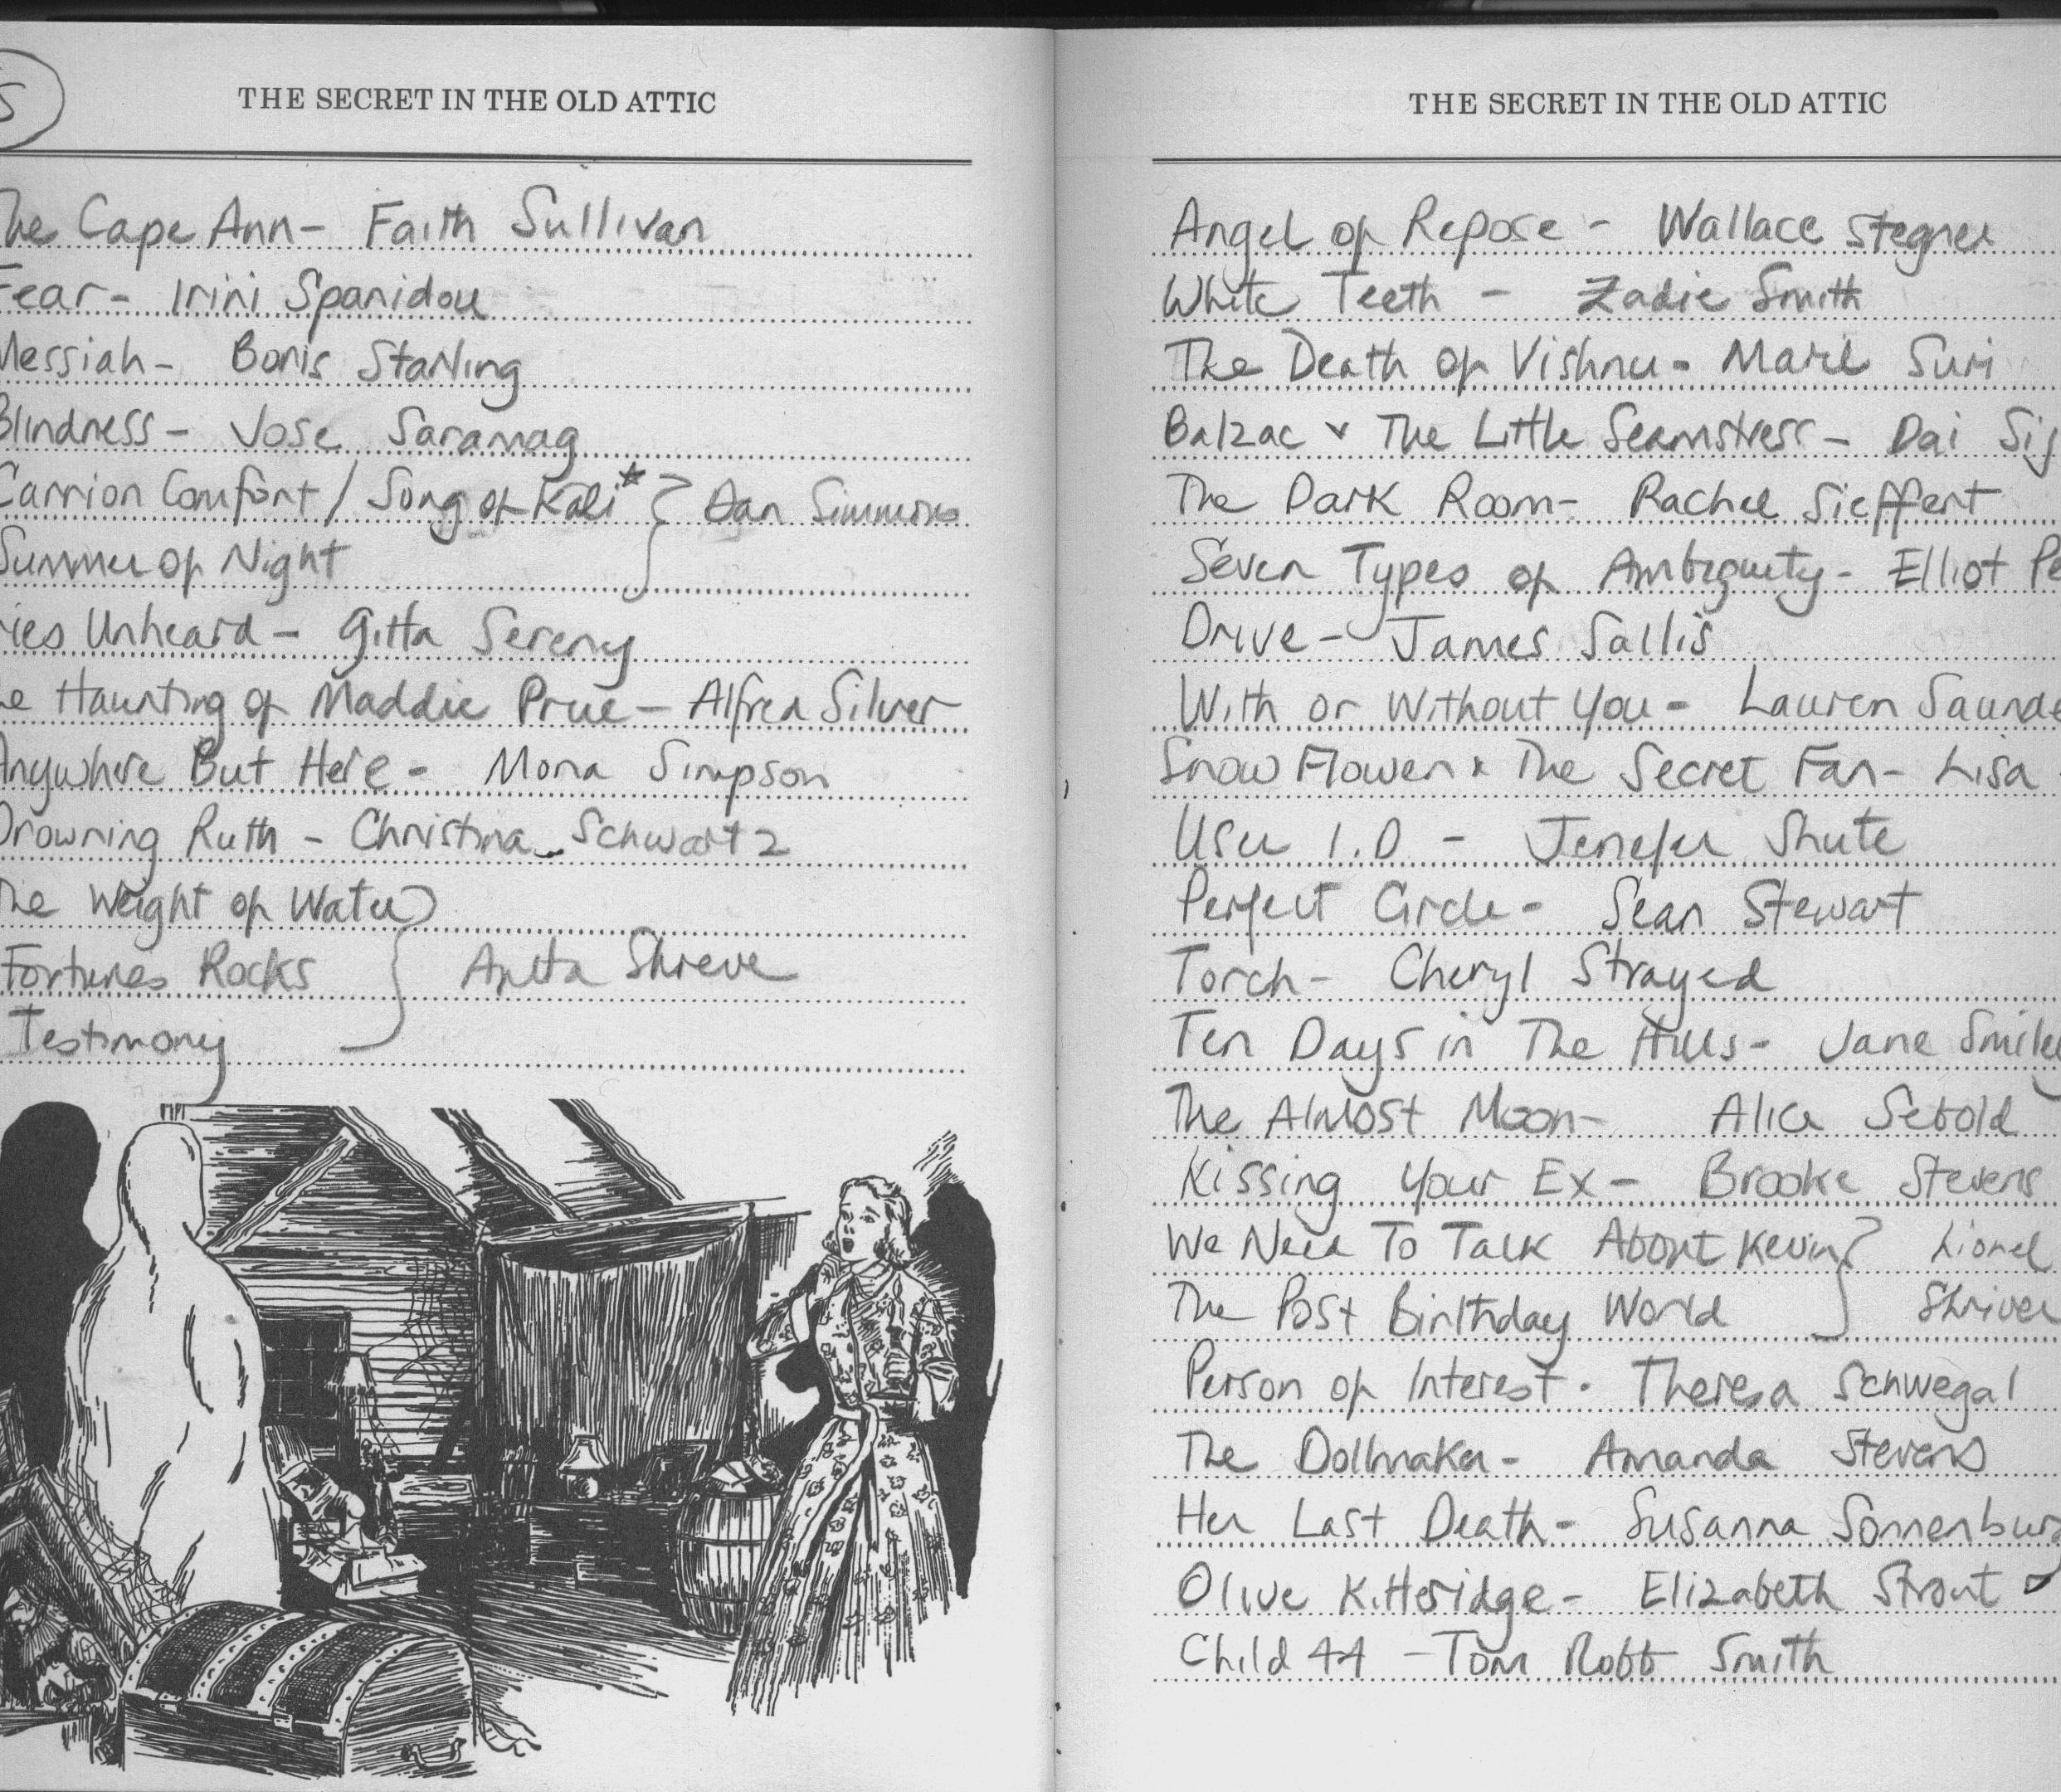 S
THE SECRET IN THE OLD ATTIC
The Cape Ann - Faith Sullivan
Fear - Irini Spanidou
Messiah - Boris Starling
Blindness - Jose Saramag
Carrion Comfort / Song of Kali* } Dan Simmons
Summer of Night
ries Unheard - Gitta Sereny
he Haunting of Maddie Prue - Alfred Silver
Anywhere But Here - Mona Simpson
Drowning Ruth - Christina Schwartz
The Weight of Water }
Fortunes Rocks } Anita Shreve
Testimony
THE SECRET IN THE OLD ATTIC
Angel of Repose - Wallace Stegner
White Teeth - Zadie Smith
The Death of Vishnu - Maril Suri
Balzac & The Little Seamstress - Dai Sij
The Dark Room - Rachel Sieffert
Seven Types of Ambiguity - Elliot Pe
Drive - James Sallis
With or Without You - Lauren Saunde
Snow Flower & The Secret Fan - Lisa
User 1.0 - Jenefer Shute
Perfect Circle - Sean Stewart
Torch - Cheryl Strayed
Ten Days in The Hills - Jane Smiley
The Almost Moon - Alice Sebold
Kissing Your Ex - Brooke Stevens
We Need To Talk About Kevin } Lionel
The Post Birthday World } Shriver
Person of Interest - Theresa Schwegal
The Dollmaker - Amanda Stevens
Her Last Death - Susanna Sonnenburg
Olive Kitteridge - Elizabeth Strout
Child 44 - Tom Robb Smith